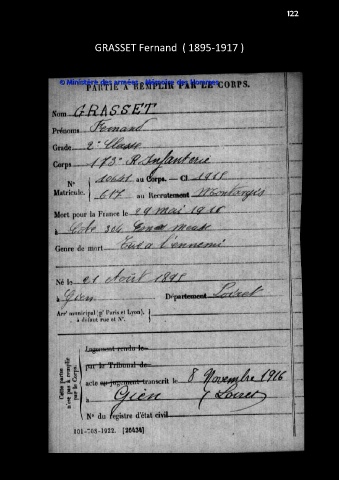 122
GRASSET Fernand ( 1895-1917 )
© Ministère des armées - Mémoire des Hommes
PARTIE A REMPLIR PAR LE CORPS.
Nom GRASSET
Prénoms Fernand
Grade 2e Classe
Corps 173e R. Infanterie
N° 10641 au Corps. — Cl. 1915
Matricule. 617 au Recrutement Montargis
Mort pour la France le 29 mai 1916
à Cote 304 Meuse
Genre de mort Tué à l'ennemi
Né le 21 Août 1895
à Gien Département Loiret
Arr' municipal (p' Paris et Lyon),
à défaut rue et N°.
Cette partie
n'est pas à remplir
par le Corps.
Jugement rendu le
par le Tribunal de
acte ou jugement transcrit le 8 Novembre 1916
à Gien (Loiret)
N° du registre d'état civil
101-708-1922. [26434]